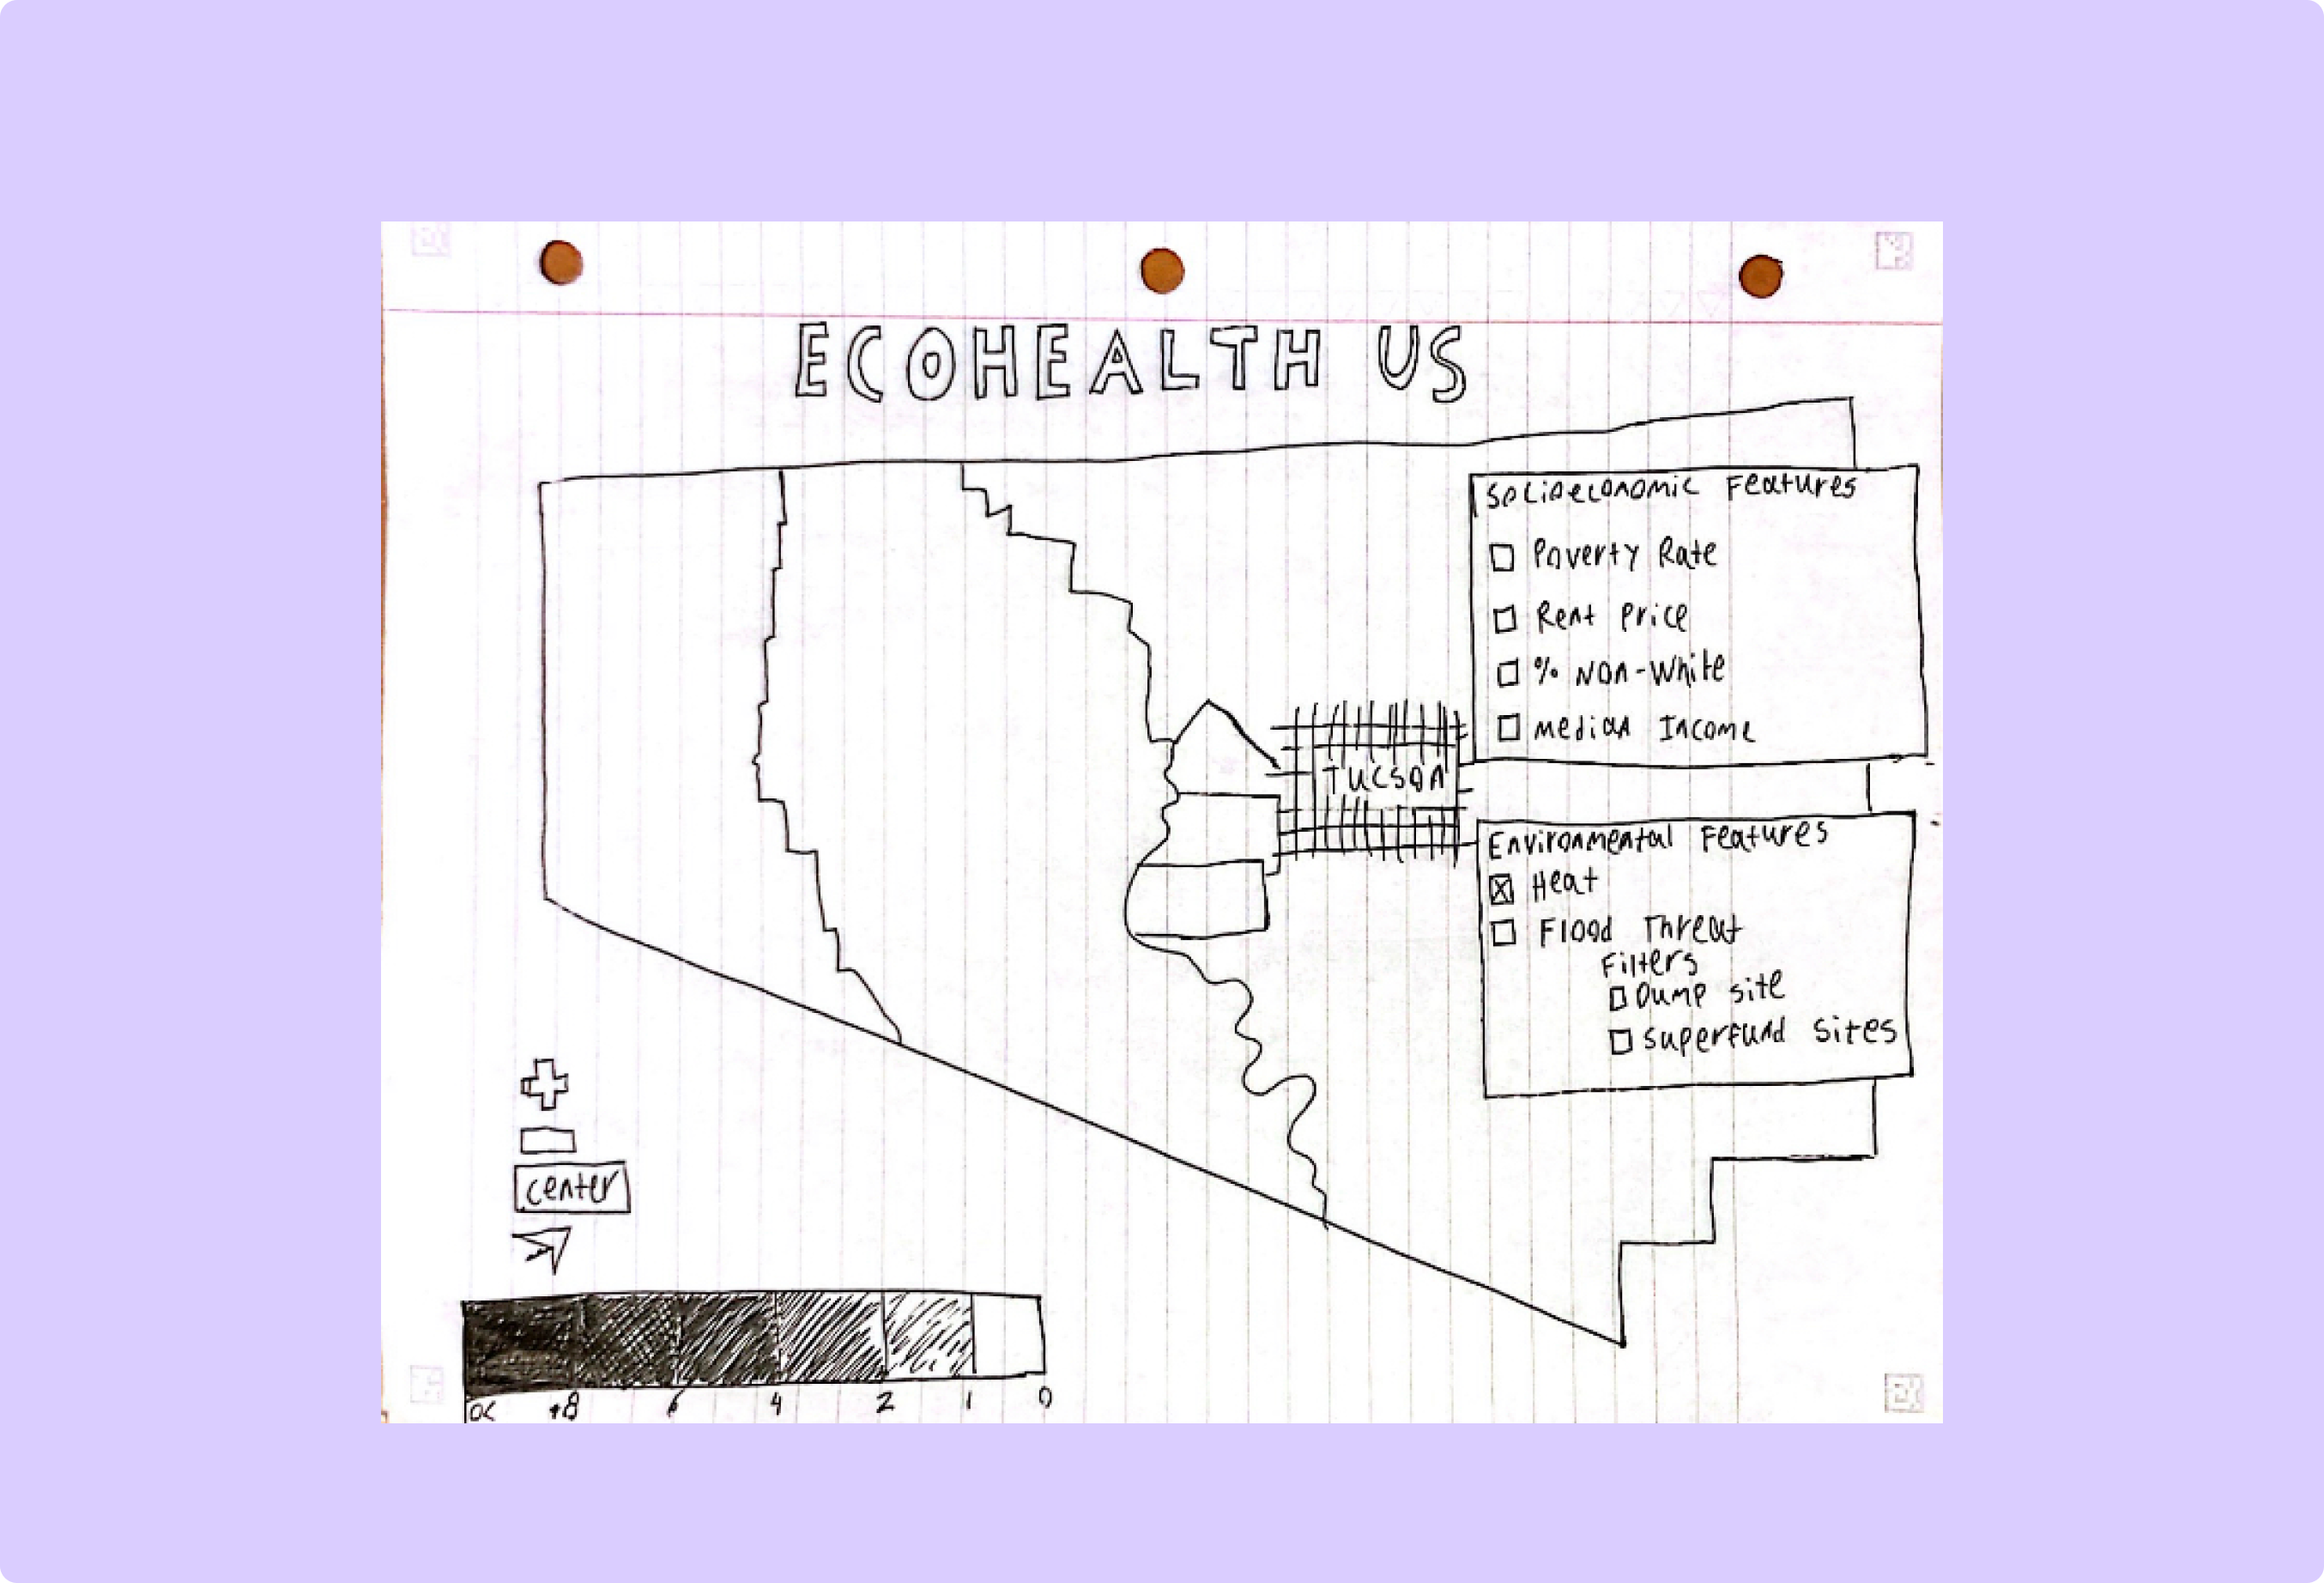 ECOHEALTH US
Socioeconomic Features
Poverty Rate
Rent Price
% Non-White
Median Income
TUCSON
Environmental Features
Heat
Flood Threat
Filters
Dump site
Superfund Sites
center
+8 6 4 2 1 0